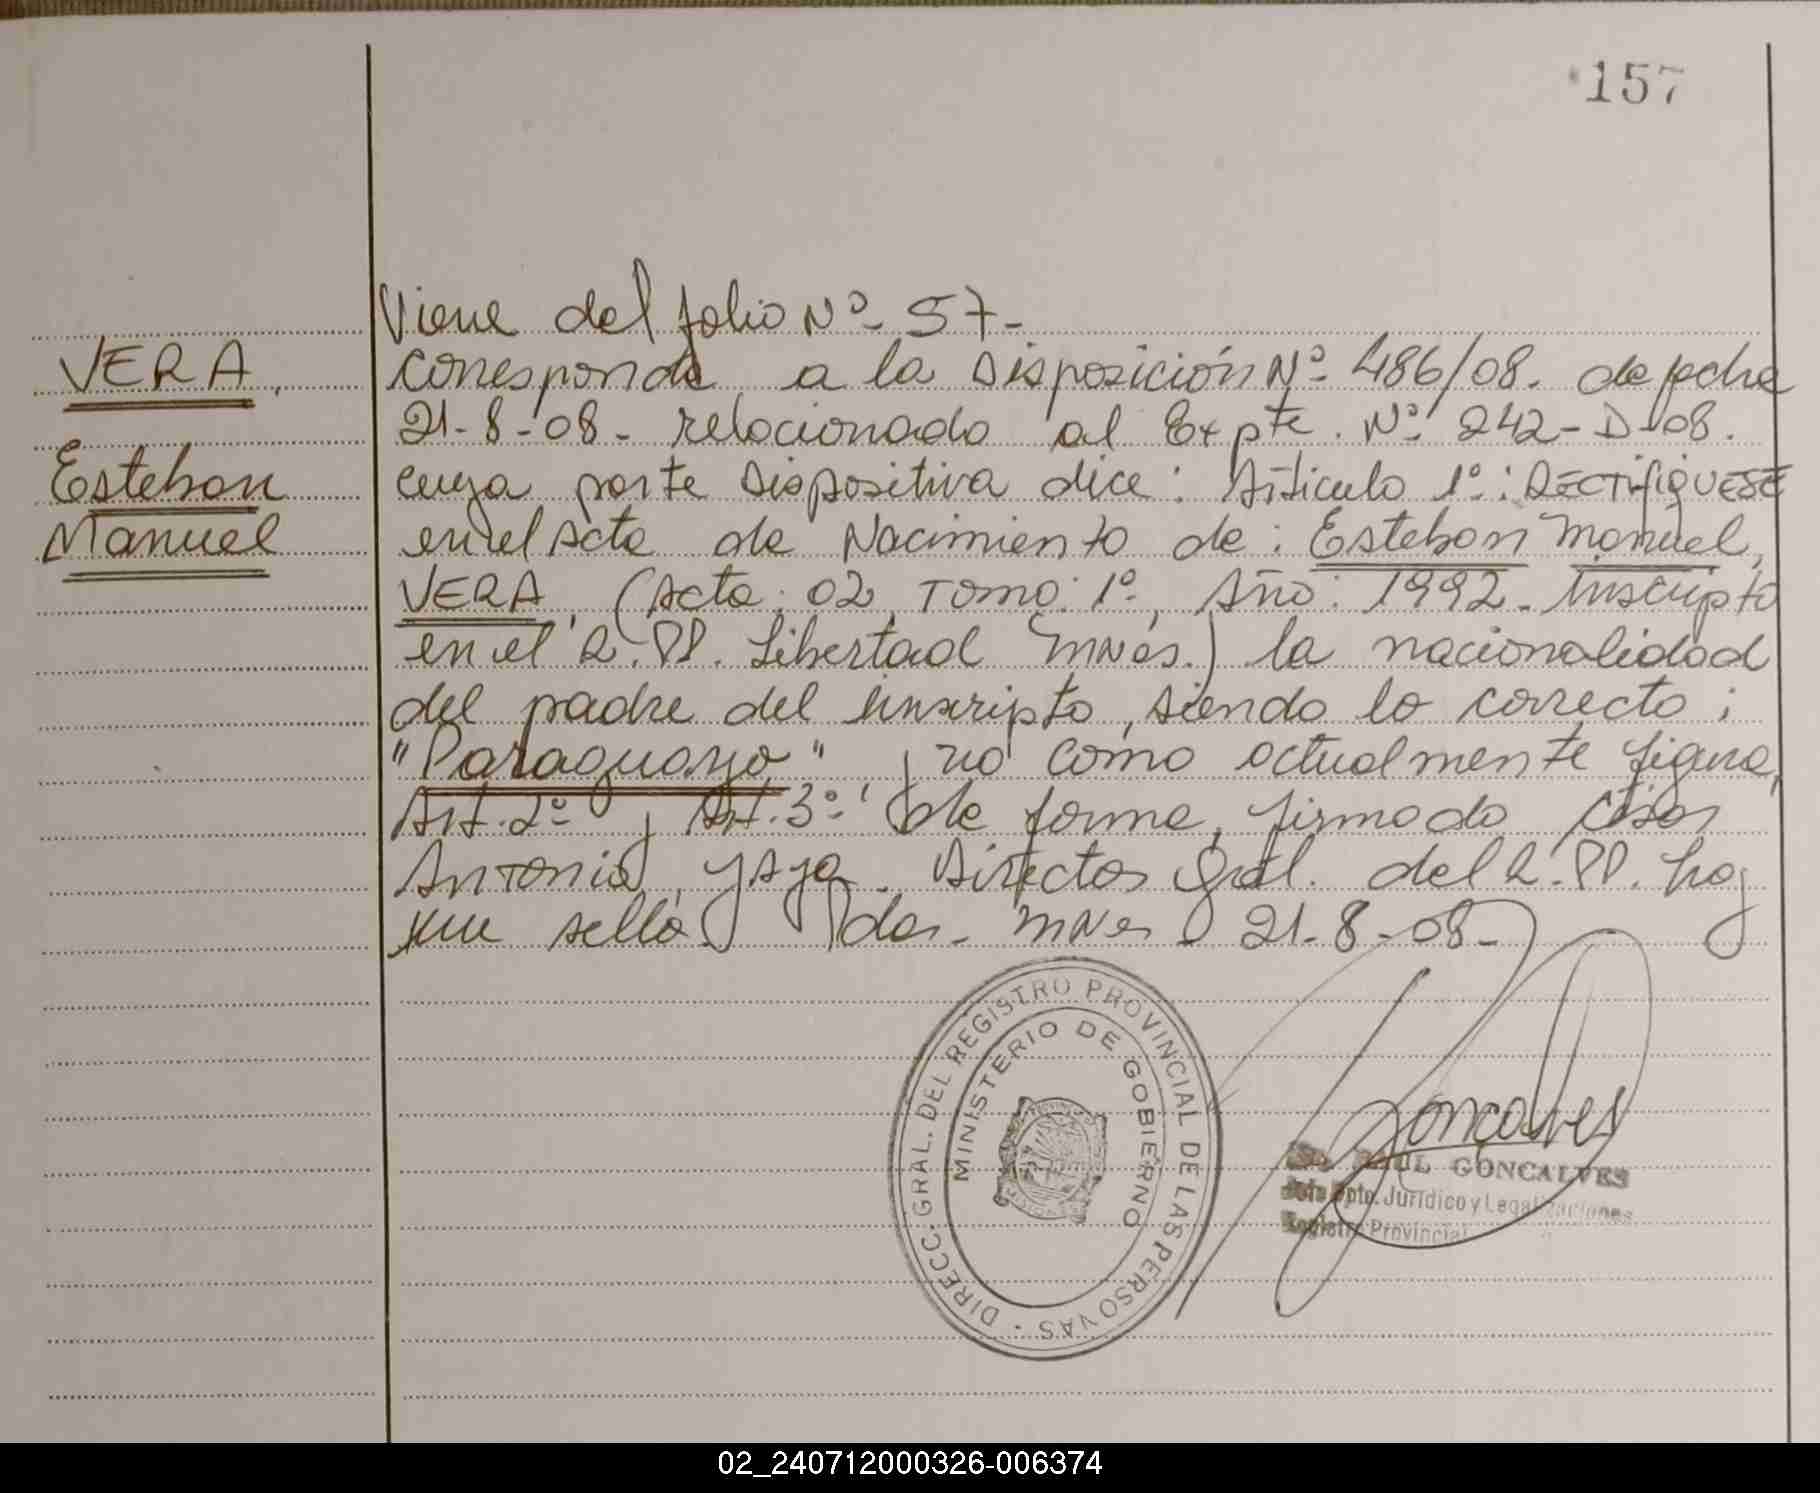 157
Viene del folio Nº- 57-
VERA,
corresponde a la Disposición Nº- 486/08. de fecha
21-8-08- relacionado al Expte. Nº- 242-D-08.
Esteban
cuya parte Dispositiva dice: Artículo 1º: RECTIFIQUESE
Manuel
en el Acta de Nacimiento de: Esteban Manuel,
VERA, (Acta: 02, Tomo: 1º, Año: 1992- Inscripto
en el R.PP. Libertad Mnes.) la nacionalidad
del padre del inscripto, siendo lo correcto;
"Paraguayo" y no como actualmente figura,
Art. 2º y Art. 3º: de forma, firmado César
Antonio, Director Gral. del R.PP. hay
un sello. Pdas- Mnes- 21-8-08-
DIRECC. GRAL. DEL REGISTRO PROVINCIAL DE LAS PERSONAS
MINISTERIO DE GOBIERNO
Goncalves
RAUL GONCALVES
Jefe Dpto. Jurídico y Legalizaciones
Registro Provincial
02_240712000326-006374